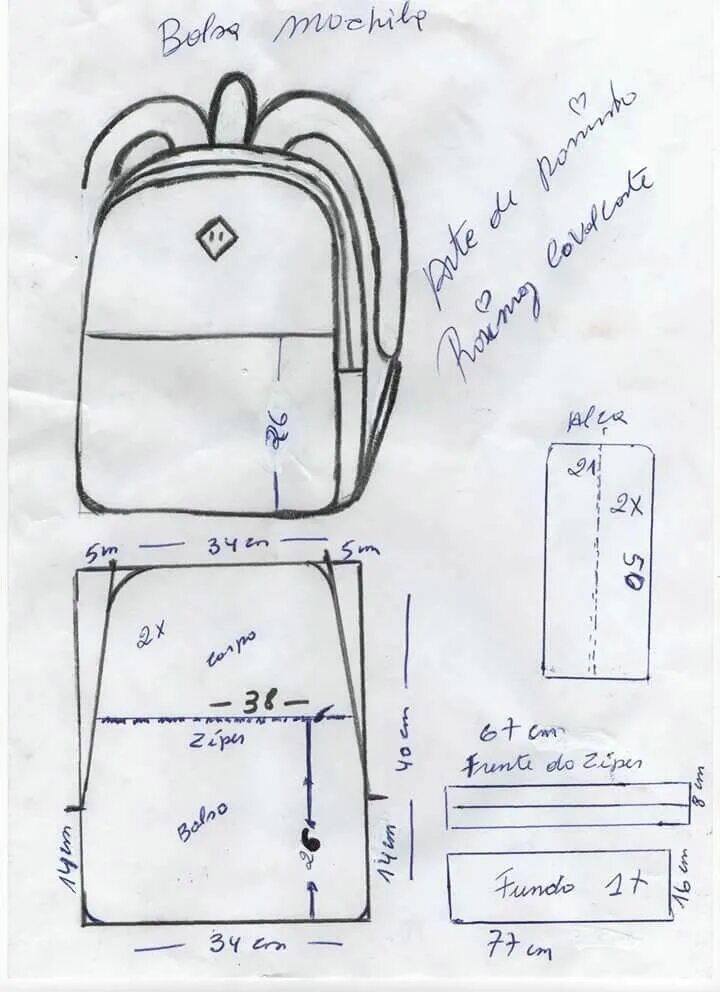 Bolsa mochila
Arte de Rosinha
Cavalcante
26
Alça
21
2x
50
5m — 34 cm — 5m
2x
corpo
— 38 —
Zíper
40 cm
Bolso
26
14 cm
14 cm
— 34 cm —
67 cm
Frente do Zíper
8 cm
Fundo 1x
16 cm
77 cm